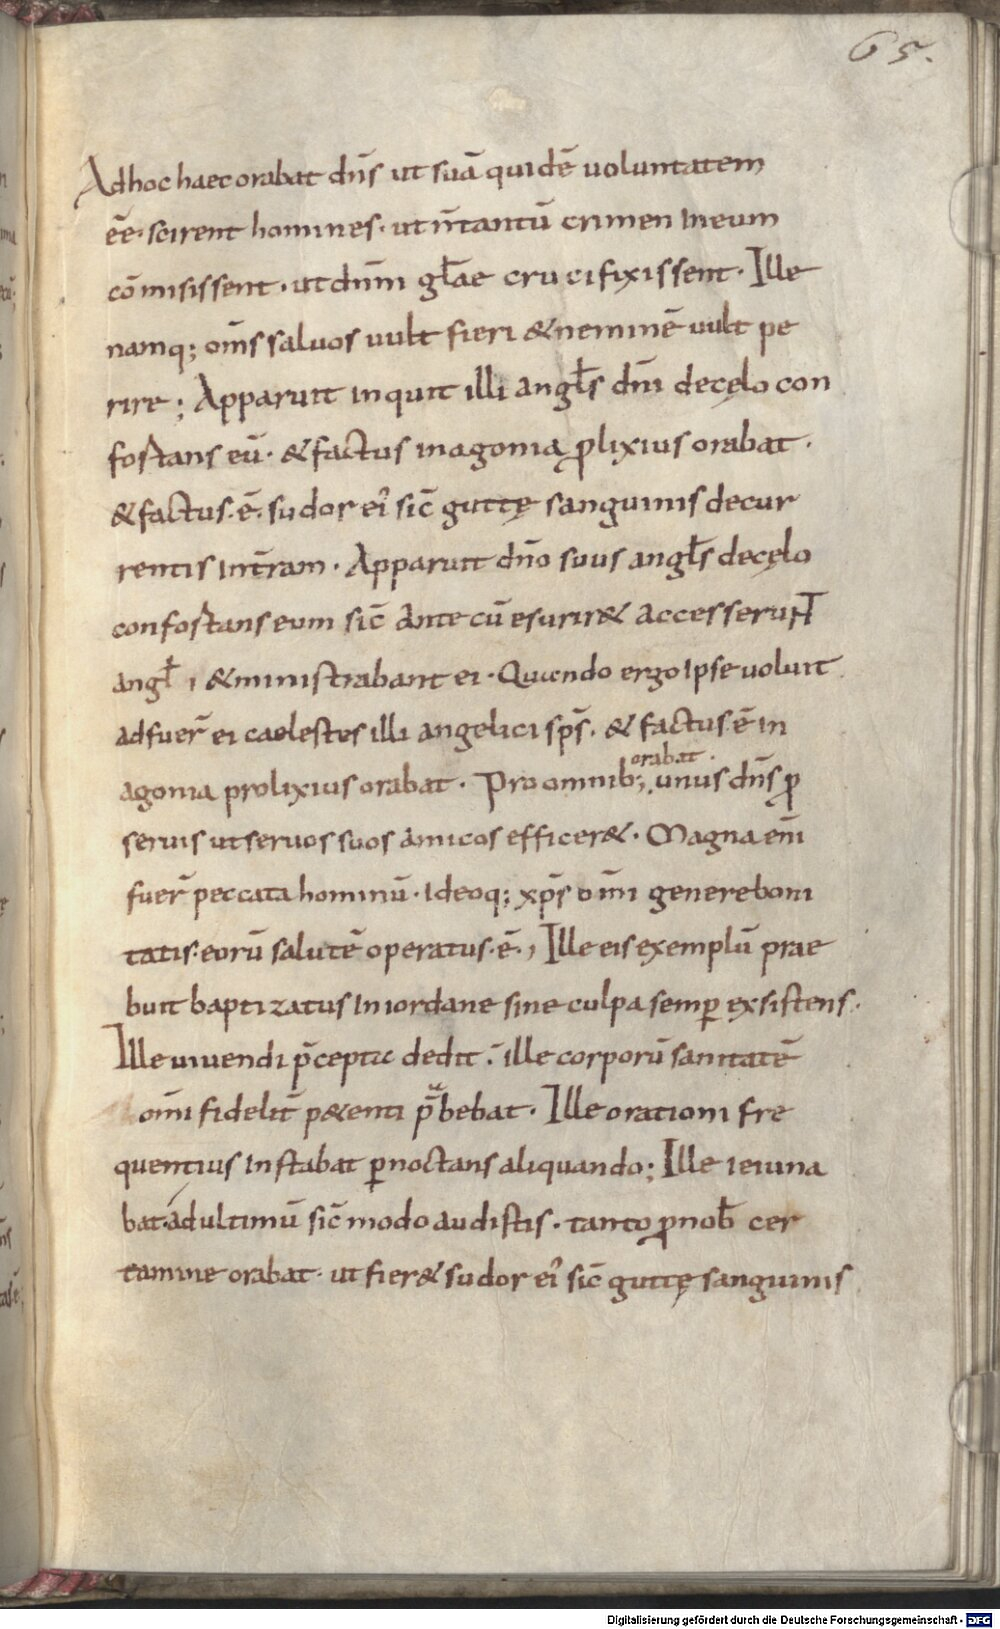 65.
Ad hoc haec orabat dn̄s ut suā quidē uoluntatem
ēē. scirent homines. ut n̄ tantū crimen in eum
cōmisissent. ut dn̄m gl̄ae crucifixissent. Ille
namq; om̄s saluos uult fieri & neminē uult pe
rire; Apparuit inquit illi angl̄s dn̄i de cęlo con
fostans eū. & factus in agonia ꝓlixius orabat.
& factus. ē. sudor ei᾽ sic̄ guttę sanguinis decur
rentis in t̄ram. Apparuit dn̄o suus angl̄s de cęlo
confostans eum sic̄ ante cū esurir& accesserunt
angl̄i & ministrabant ei. Quando ergo ipse uoluit
adfuer̄ ei caelestes illi angelici sps̄. & factus. ē in
agonia prolixius orabat. Pro omnib; orabat. unus dn̄s ꝓ
seruis ut seruos suos amicos efficer&. Magna eni̅
fuer̄ peccata hominū. Ideoq; xp̄s om̄i genere boni
tatis. eorū salutē operatus. ē., Ille eis exemplū prae
buit baptizatus in iordane sine culpa semꝑ exsistens.
Ille uiuendi p̄cepta dedit. ille corporū sanitatē
om̄i fidelit̄ p&enti p̄bebat. Ille orationi fre
quentius instabat ꝑnoctans aliquando; Ille ieiuna
bat. ad ultimū sic̄ modo audistis. tanto ꝓ nob̄ cer
tamine orabat. ut fier& sudor ei᾽ sic̄ guttę sanguinis
Digitalisierung gefördert durch die Deutsche Forschungsgemeinschaft - DFG